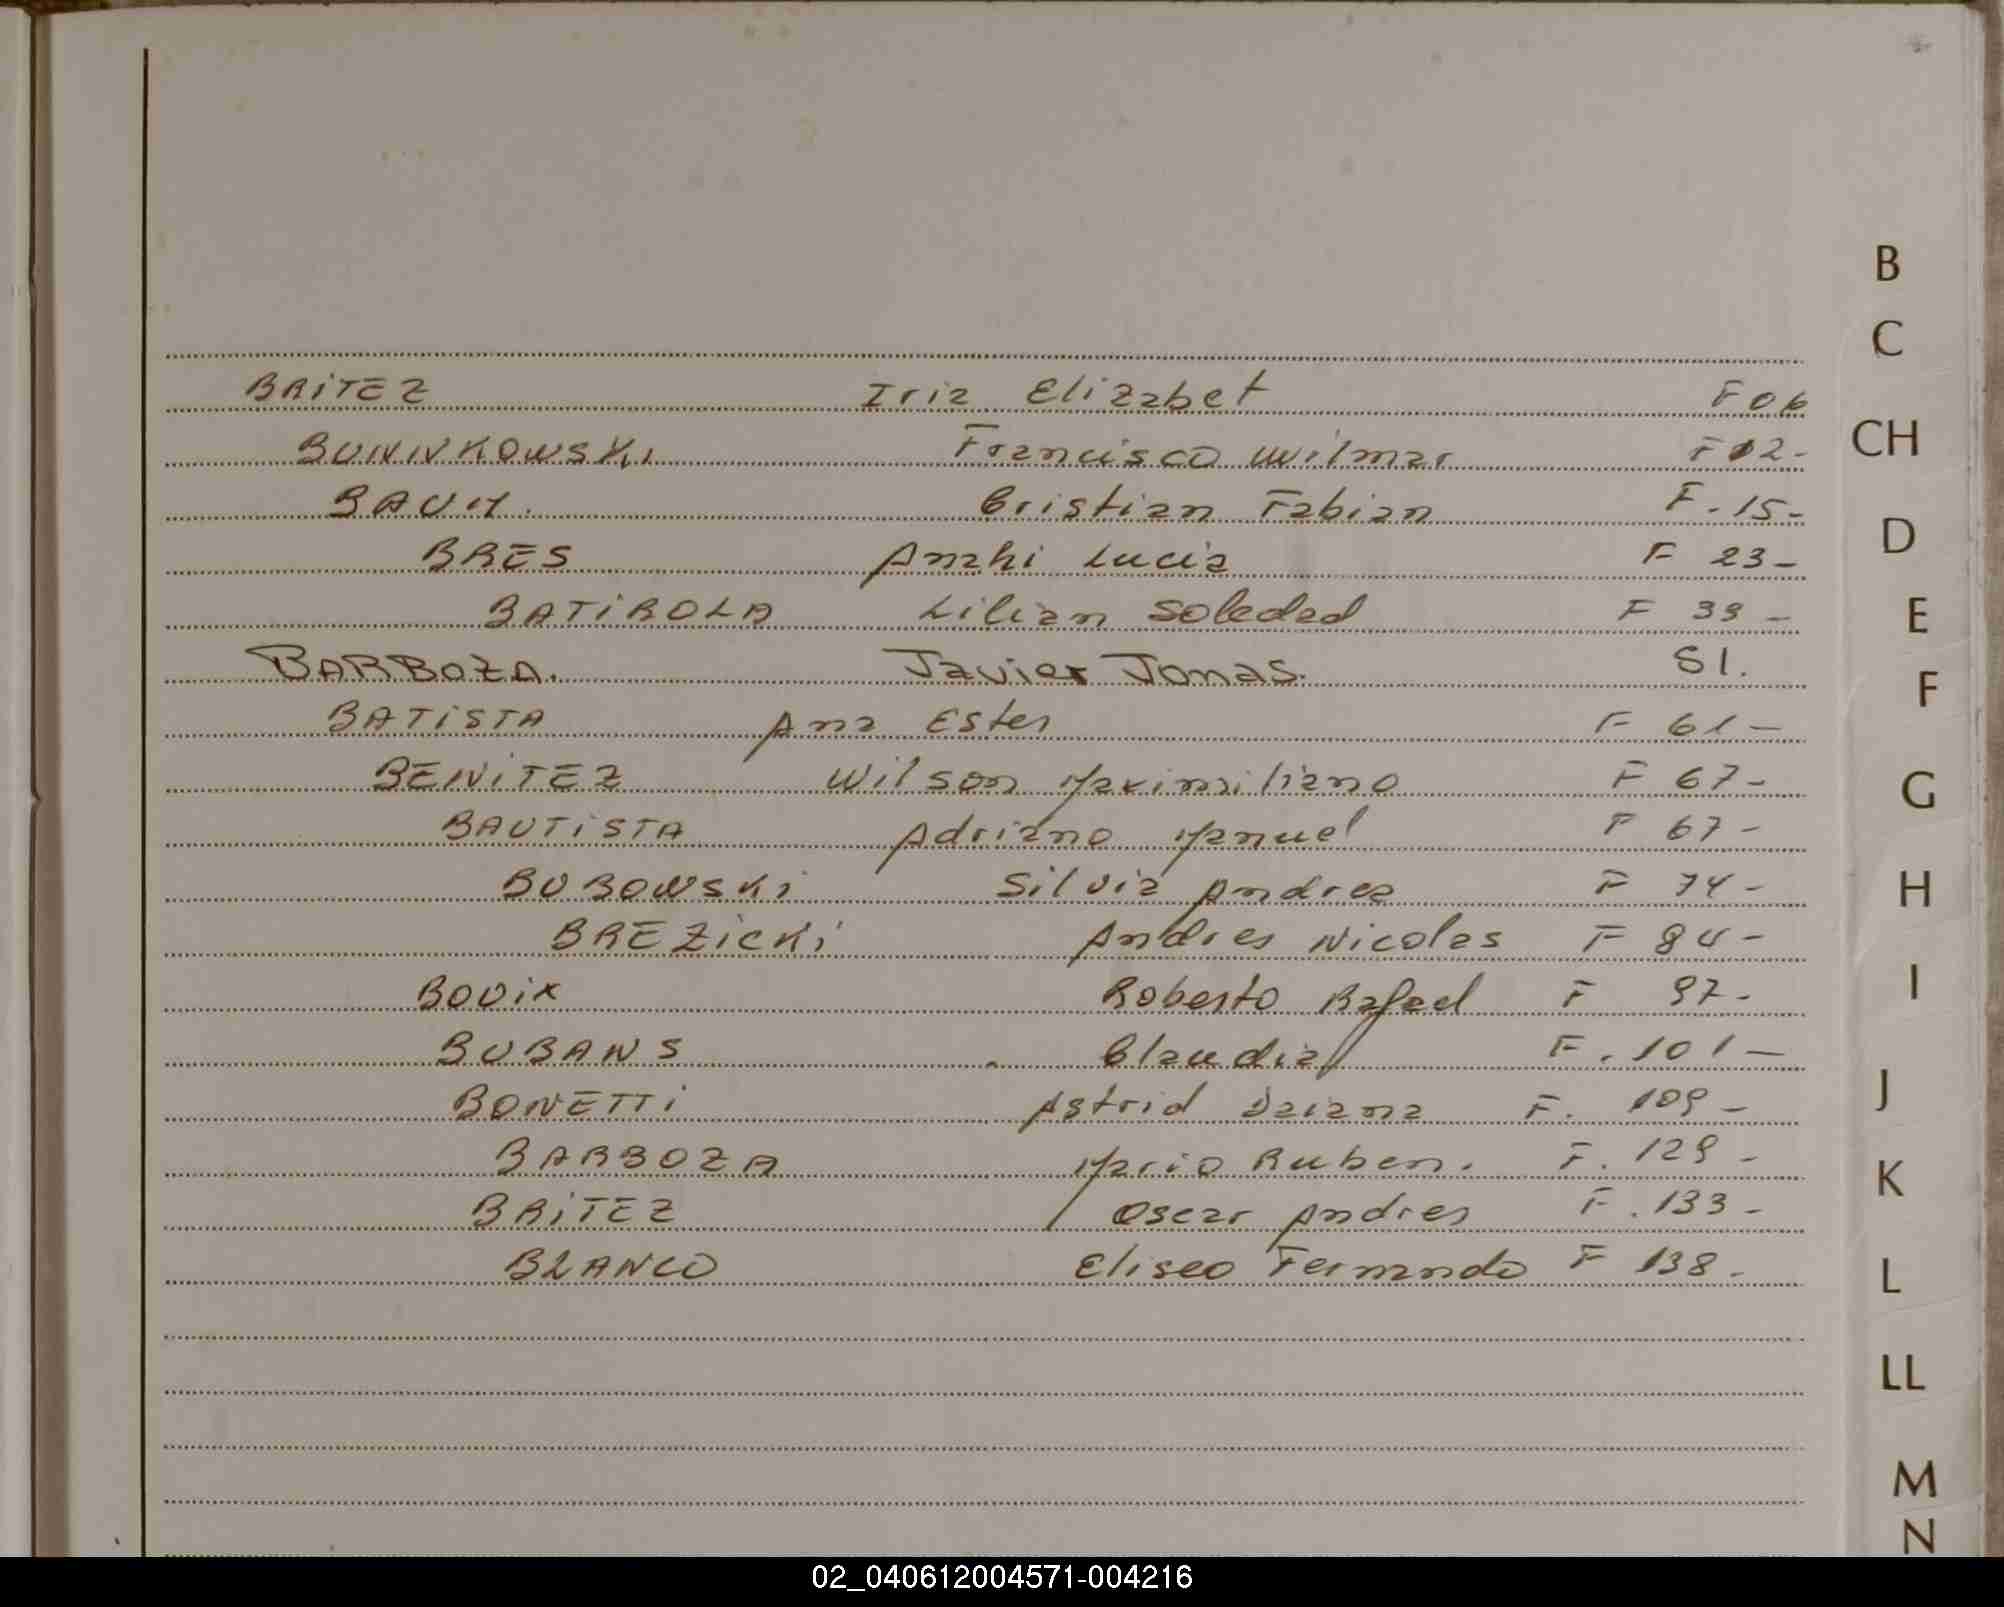 BRITEZ Iris Elizabet F 06
BUNINKOWSKI Francisco Wilmar F 12-
BAUM. Cristian Fabian F. 15-
BRES Anahi Lucia F 23-
BATIROLA Lilian Soledad F 39-
BARBOZA. Javier Jonas. 51.
BATISTA Ana Ester F 61-
BENITEZ Wilson Maximiliano F 67-
BAUTISTA Adriano Manuel F 67-
BUBOWSKI Silvia Andrea F 74-
BREZICKI Andres Nicolas F 84-
BOVIX Roberto Rafael F 97-
BUBANS Claudia F. 101-
BONETTI Astrid Daiana F. 109-
BARBOZA Mario Ruben. F. 129-
BRITEZ Oscar Andres F. 133-
BLANCO Eliseo Fernando F 138-
B
C
CH
D
E
F
G
H
I
J
K
L
LL
M
N
02_040612004571-004216